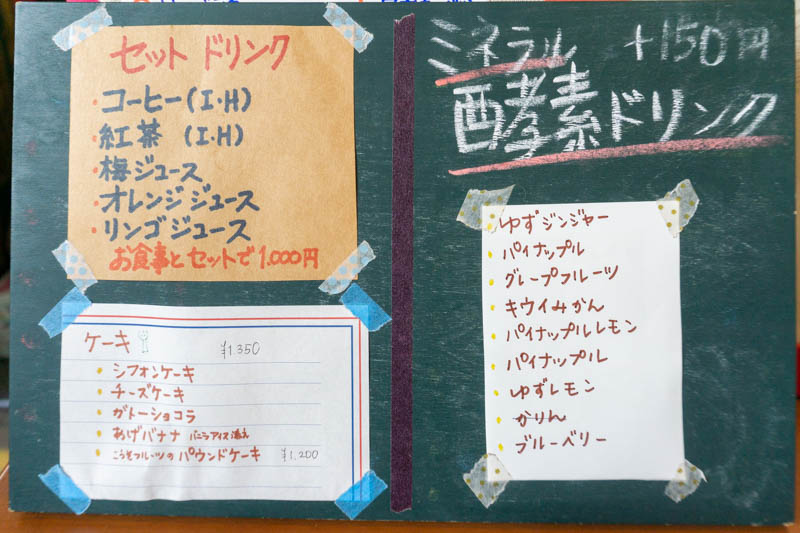 セット ドリンク
・コーヒー(I・H)
・紅茶 (I・H)
・梅ジュース
・オレンジジュース
・リンゴジュース
お食事とセットで1.000円
ケーキ ¥1.350
・シフォンケーキ
・チーズケーキ
・ガトーショコラ
・あげバナナ バニラアイス添え
・こうそフルーツの パウンドケーキ ¥1.200
ミネラル +150円
酵素ドリンク
・ゆずジンジャー
・パイナップル
・グレープフルーツ
・キウイみかん
・パイナップルレモン
・パイナップル
・ゆずレモン
・かりん
・ブルーベリー